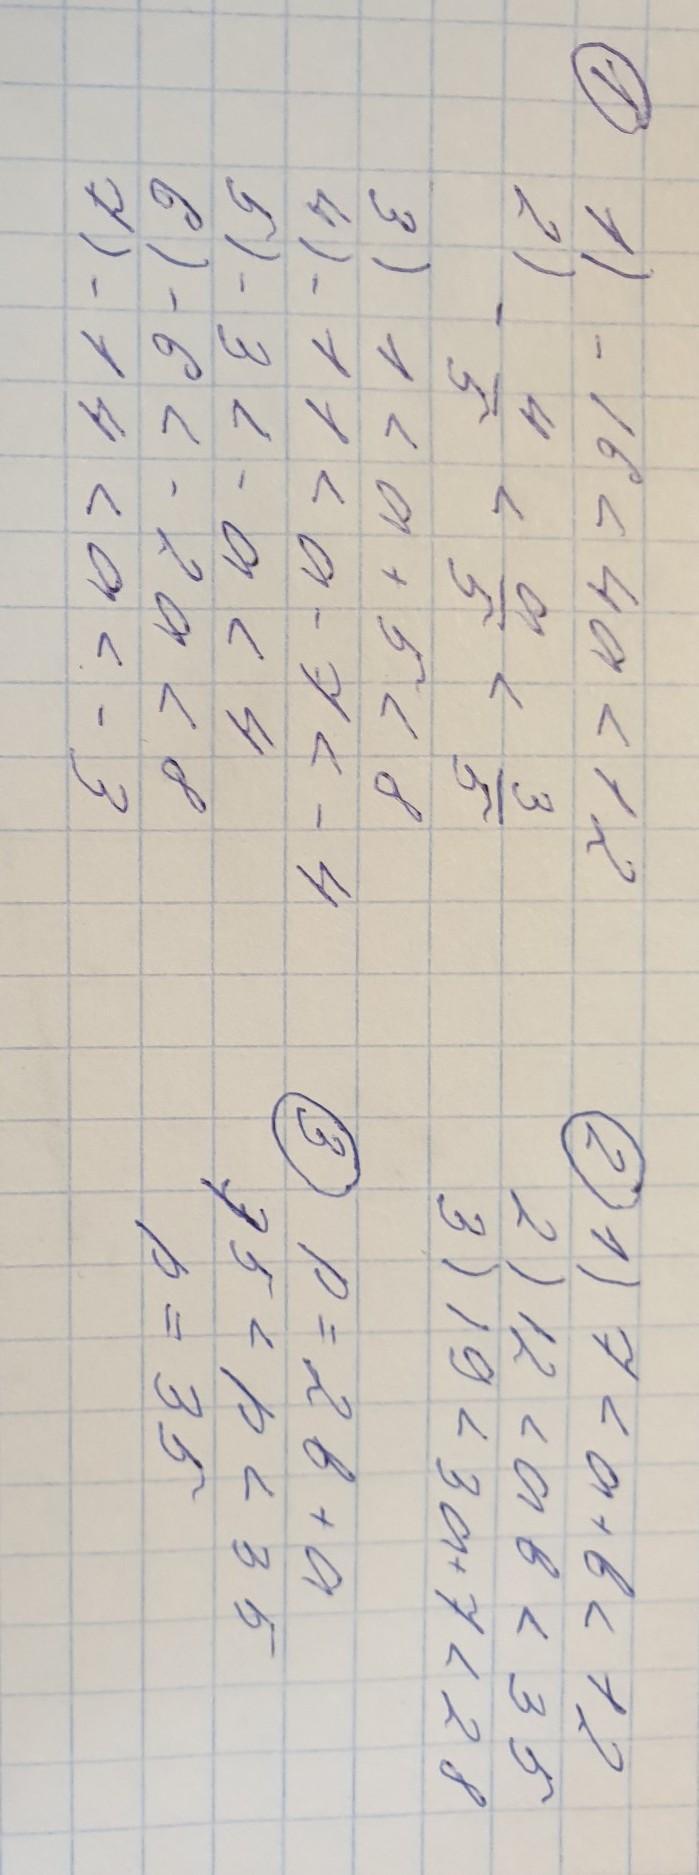 ① 1) -16 < 4a < 12
2) - 4/5 < a/5 < 3/5
3) 1 < a + 5 < 8
4) - 11 < a - 7 < - 4
5) - 3 < - a < 4
6) - 6 < - 2a < 8
7) - 14 < a < - 3
② 1) 7 < a + в < 12
2) 12 < a в < 35
3) 19 < 3a + 7 < 28
③ p = 2в + a
25 < p < 35
p = 35